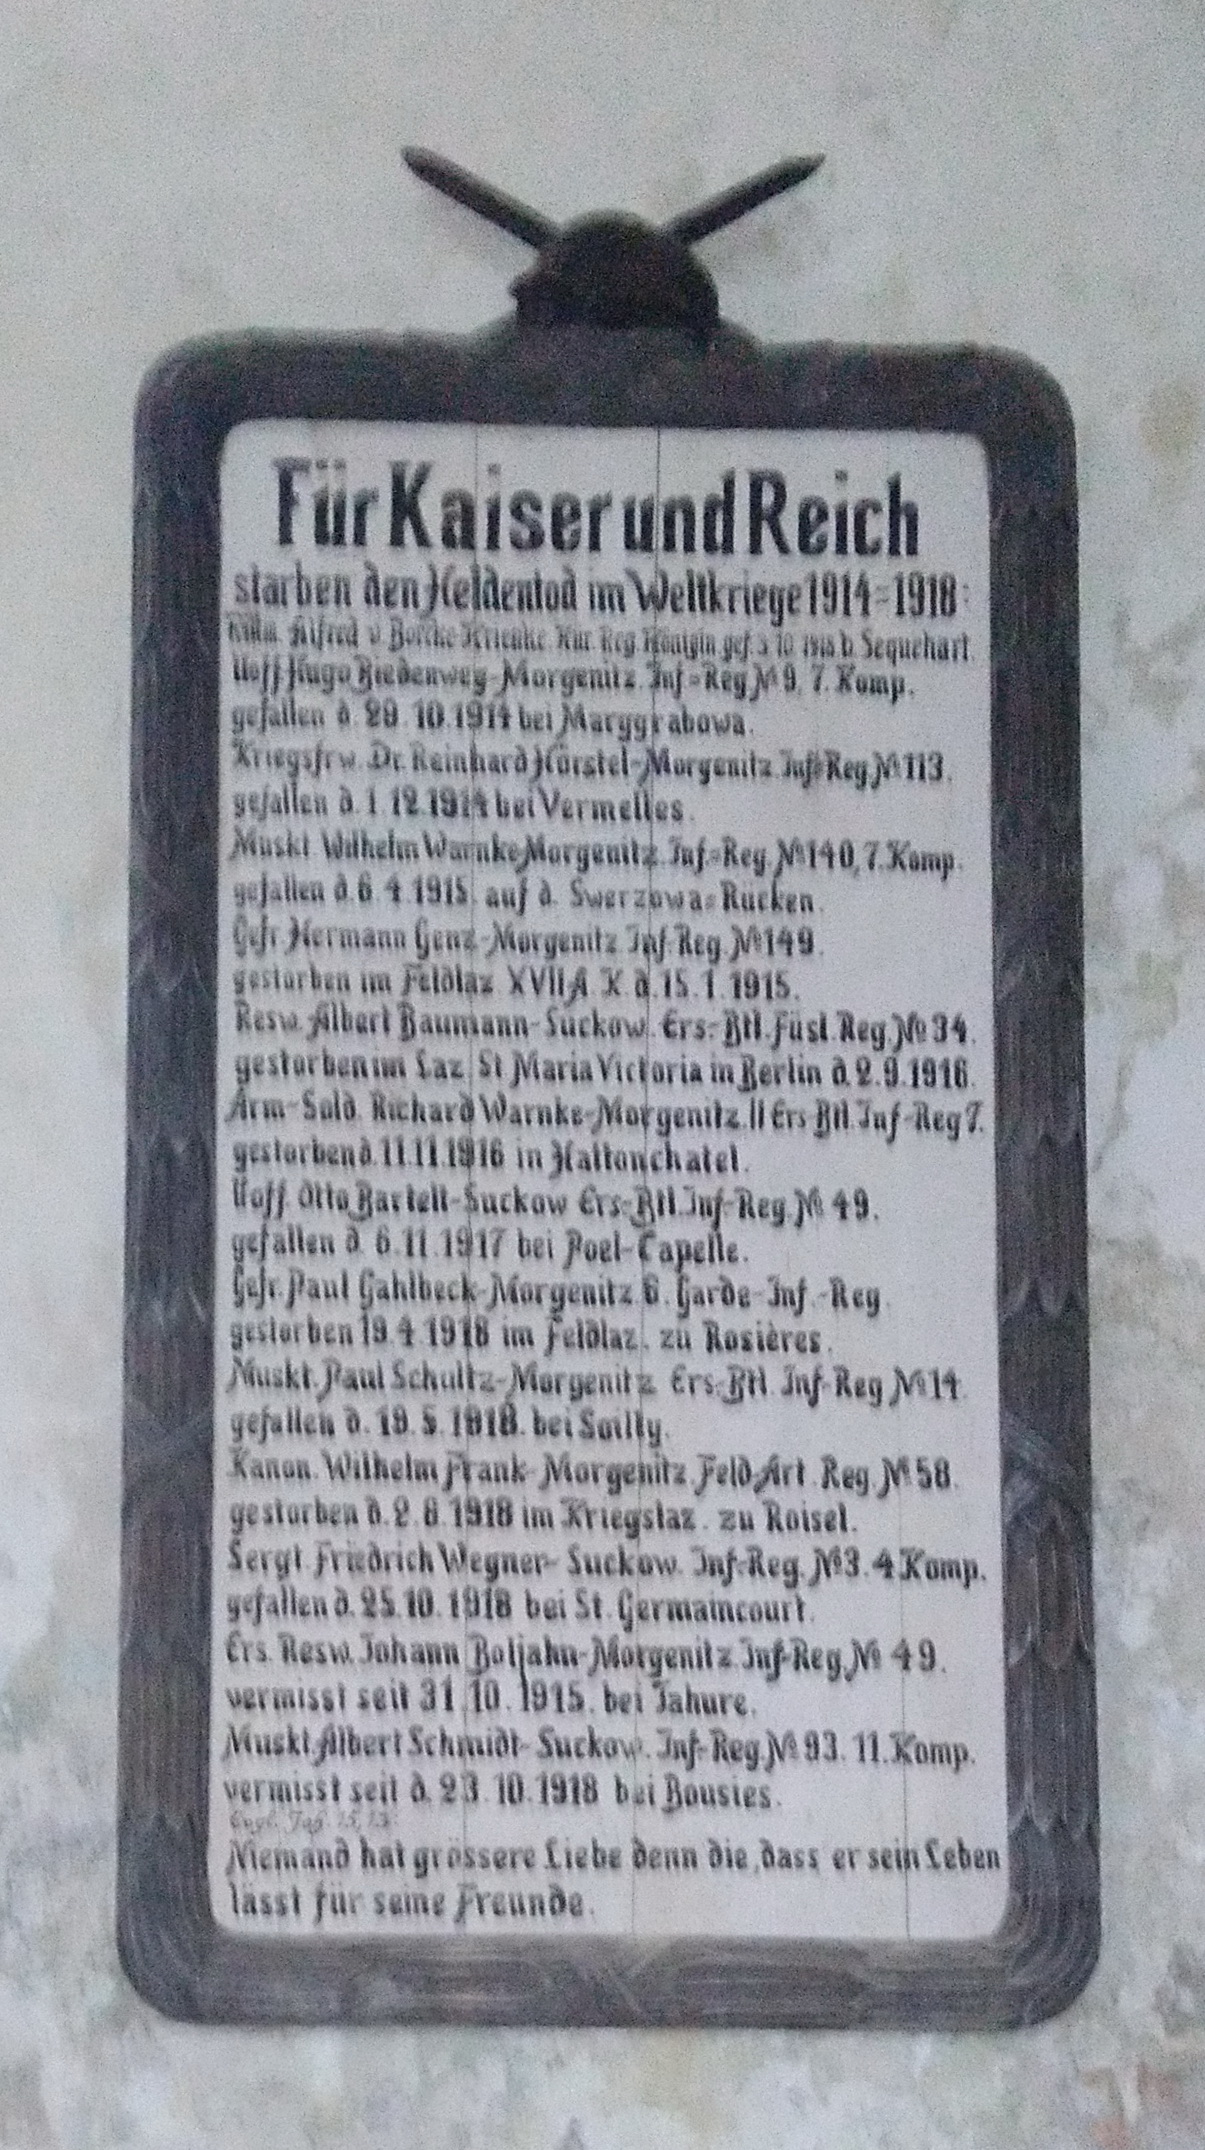 Für Kaiser und Reich
starben den Heldentod im Weltkriege 1914=1918:
Rittm. Alfred v. Borcke-Krienke. Kür. Reg. Königin gef. 3.10.1918 b. Sequehart.
Uoff. Hugo Biedenweg-Morgenitz. Inf=Reg. № 9, 7. Komp.
gefallen d. 29. 10. 1914 bei Marggrabowa.
Kriegsfrw. Dr. Reinhard Hörstel-Morgenitz. Inf=Reg. № 113.
gefallen d. 1. 12. 1914 bei Vermelles.
Muskt. Wilhelm Warnke-Morgenitz. Inf.=Reg. № 140, 7. Komp.
gefallen d. 6. 4. 1915. auf d. Swerzowa=Rücken.
Gefr. Hermann Genz-Morgenitz. Inf-Reg. № 149.
gestorben im Feldlaz. XVII A. K. d. 15. 1. 1915.
Resw. Albert Baumann-Suckow. Ers.-Btl. Füsl. Reg. № 34.
gestorben im Laz. St. Maria Victoria in Berlin d. 2. 9. 1916.
Arm-Sold. Richard Warnke-Morgenitz. II Ers Btl. Inf-Reg 7.
gestorben d. 11. 11. 1916 in Hattonchatel.
Uoff. Otto Bartelt-Suckow Ers-Btl. Inf-Reg. № 49.
gefallen d. 6. 11. 1917 bei Poel-Capelle.
Gefr. Paul Gahlbeck-Morgenitz. 6. Garde-Inf.-Reg.
gestorben 19. 4. 1918 im Feldlaz. zu Rosières.
Muskt. Paul Schultz-Morgenitz. Ers.-Btl. Inf-Reg № 14.
gefallen d. 19. 5. 1918. bei Sailly.
Kanon. Wilhelm Frank-Morgenitz. Feld-Art. Reg. № 58.
gestorben d. 2. 6. 1918 im Kriegslaz. zu Roisel.
Sergt. Friedrich Wegner-Suckow. Inf-Reg. № 3. 4. Komp.
gefallen d. 25. 10. 1918 bei St. Germaincourt.
Ers. Resw. Johann Boljahn-Morgenitz. Inf-Reg. № 49.
vermisst seit 31. 10. 1915. bei Tahure.
Muskt. Albert Schmidt-Suckow. Inf-Reg. № 93. 11. Komp.
vermisst seit d. 23. 10. 1918 bei Bousies.
Evgl. Joh. 15, 13.
Niemand hat grössere Liebe denn die, dass er sein Leben
lässt für seine Freunde.